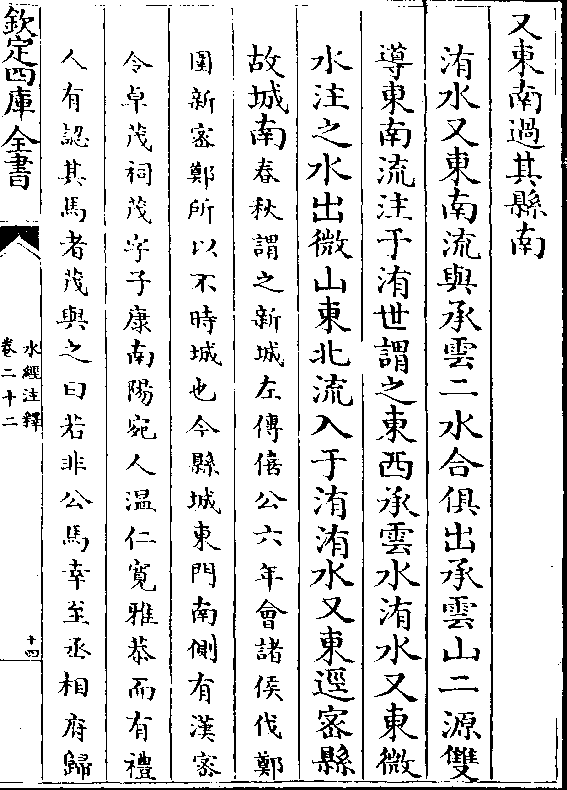 又東南過其縣南
洧水又東南流與承雲二水合俱出承雲山二源雙
導東南流注于洧世謂之東西承雲水洧水又東微
水注之水出微山東北流入于洧洧水又東逕密縣
故城南春秋謂之新城左傳僖公六年會諸侯伐鄭
圍新密鄭所以不時城也今縣城東門南側有漢密
令卓茂祠茂字子康南陽宛人温仁寛雅恭而有禮
人有認其馬者茂與之曰若非公馬幸至丞相府歸
欽定四庫全書
水經注釋
卷二十二
十四